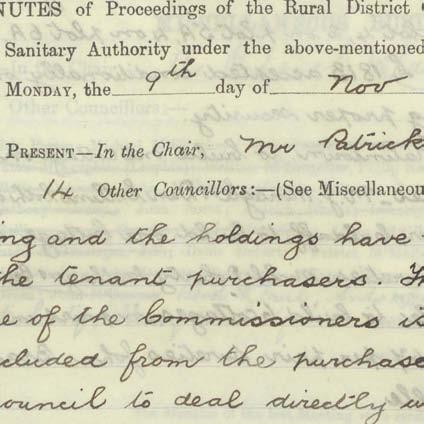 NUTES of Proceedings of the Rural District
Sanitary Authority under the above-mentioned
MONDAY, the 9th day of Nov
PRESENT—In the Chair, Mr Patrick
14 Other Councillors:—(See Miscellaneou
ing and the holdings have
the tenant purchasers. Th
e of the Commissioners is
cluded from the purchase
ouncil to deal directly w